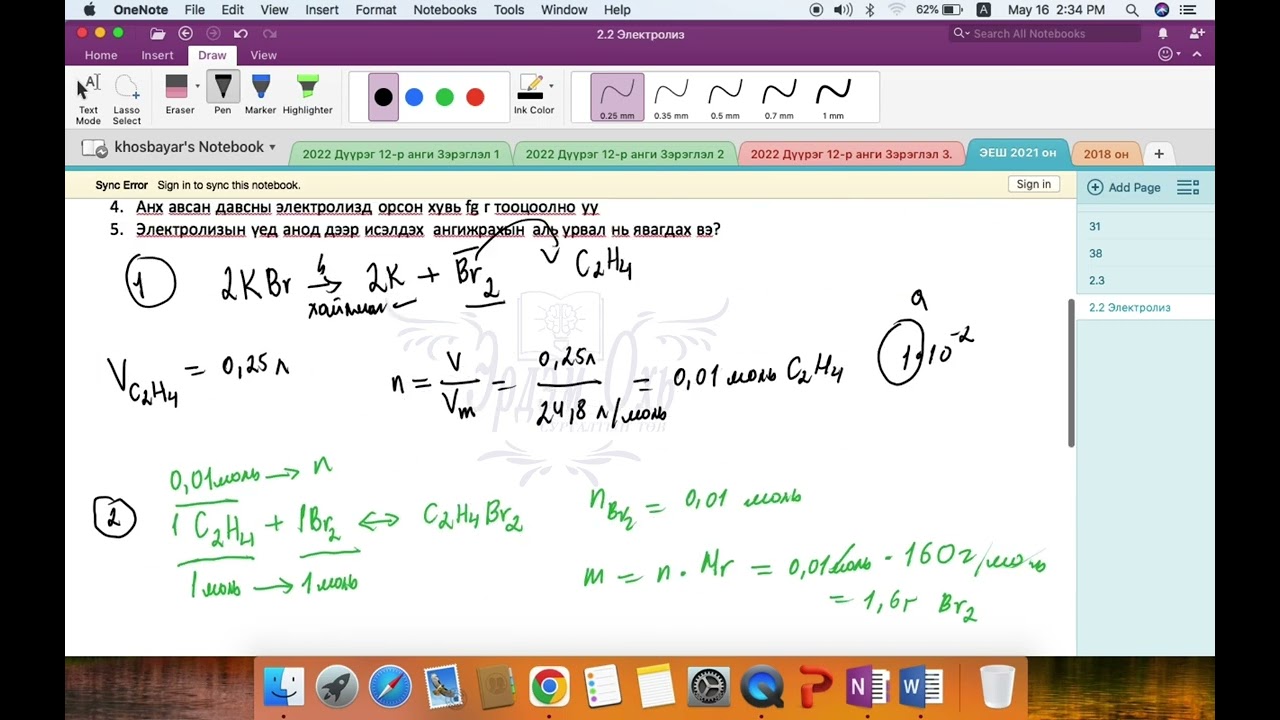 OneNote File Edit View Insert Format Notebooks Tools Window Help 62% A May 16 2:34 PM
2.2 Электролиз
Search All Notebooks
Home Insert Draw View
Text Mode
Lasso Select
Eraser Pen Marker Highlighter
Ink Color
0.25 mm 0.35 mm 0.5 mm 0.7 mm 1 mm
khosbayar's Notebook
2022 Дүүрэг 12-р анги Зэрэглэл 1
2022 Дүүрэг 12-р анги Зэрэглэл 2
2022 Дүүрэг 12-р анги Зэрэглэл 3.
ЭЕШ 2021 он
2018 он
+
Sync Error Sign in to sync this notebook.
Sign in
Add Page
31
38
2.3
2.2 Электролиз
4. Анх авсан давсны электролизд орсон хувь fg г тооцоолно уу
5. Электролизын үед анод дээр исэлдэх ангижрахын аль урвал нь явагдах вэ?
1 2KBr → 2K + Br2 C2H4
хайлмаг
a
1·10⁻²
V C2H4 = 0,25л n = V/Vm = 0,25л / 24,8 л/моль = 0,01 моль C2H4
Эрдэм Охь
СУРГАЛТЫН ТӨВ
0,01 моль → n
2 1 C2H4 + 1Br2 ⇔ C2H4Br2
1 моль → 1 моль
n Br2 = 0,01 моль
m = n · Mr = 0,01 моль · 160г/моль
= 1,6г Br2